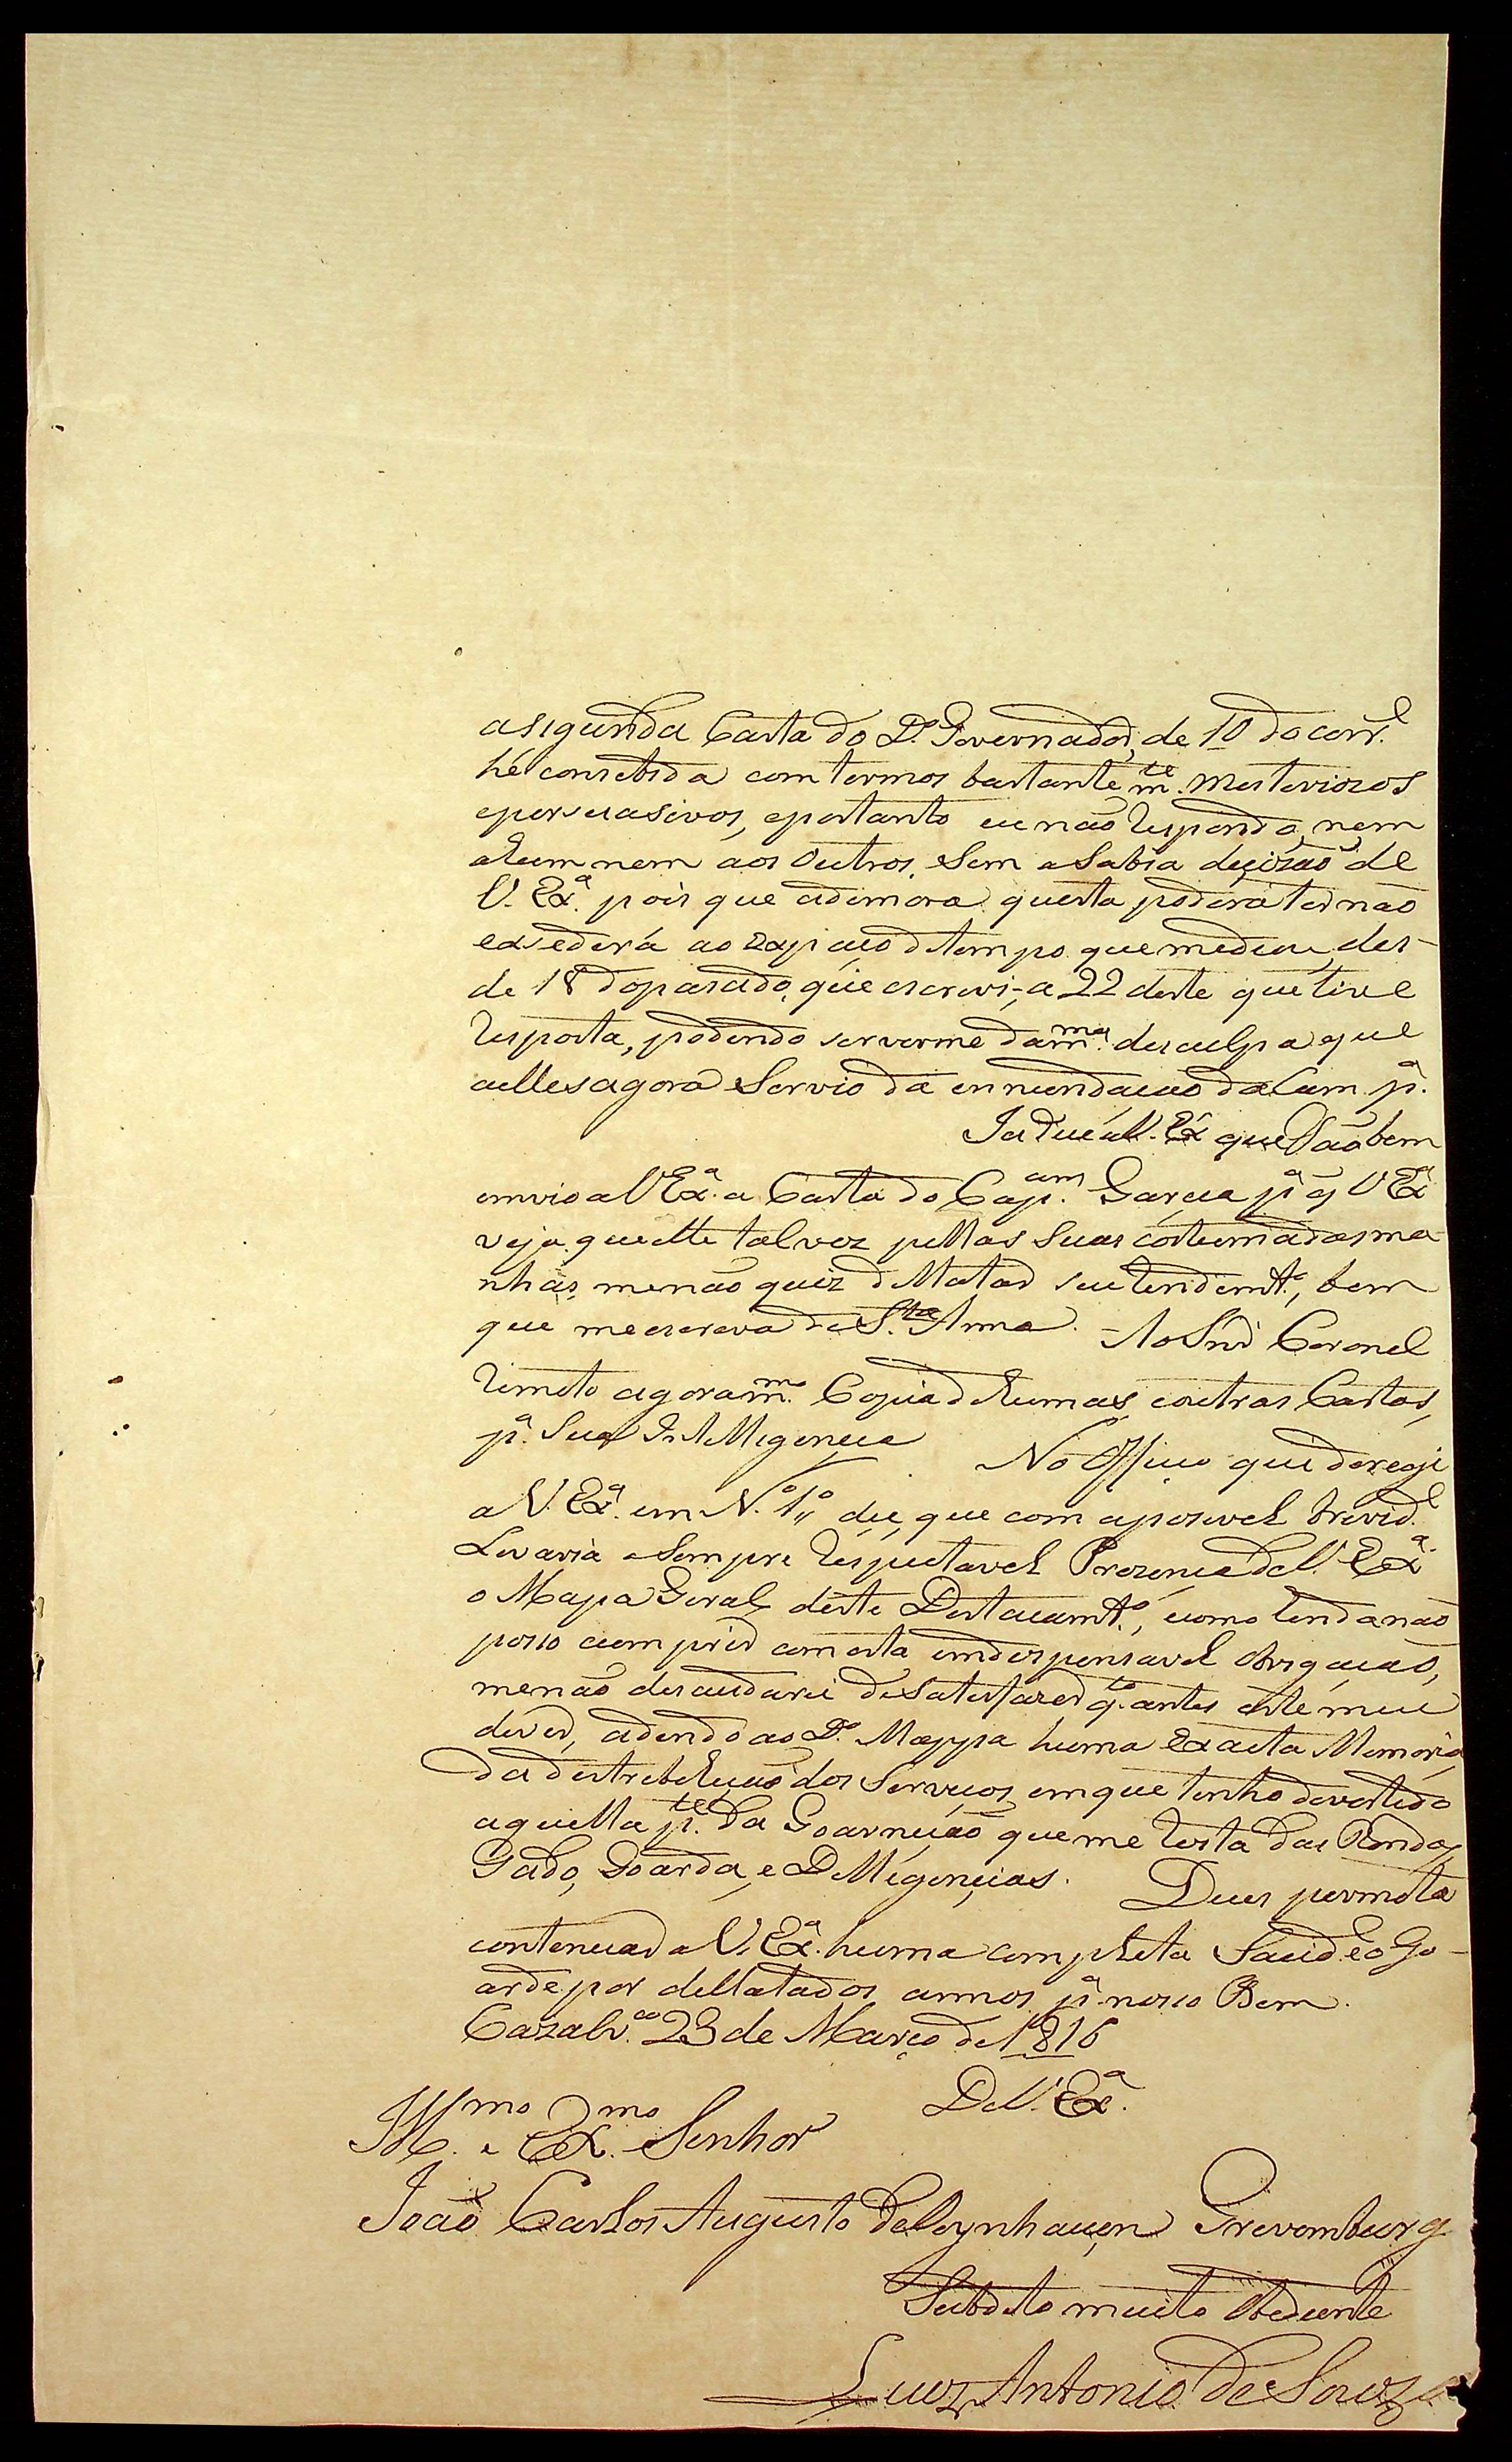 asegunda Carta do D.º Governador, de 10 do corr.e
hé consebida com termos bastante m.te misteriozos
epersuasivos, eportanto eu não Respondo, nem
ahum nem aos outros, Sem a Sabia decizaõ de
V. Ex.ª pois que ademora questa poderá ter não
excederá ao Expaço detempo que mediou, des-
de 18 dopasado, que escrevi, a 22 deste que tive
Resposta, podendo serverme dam.ma desculpa que
aelles agora Servio da ennundacaõ da Cam p.ª
Ja dice a V. Ex.ª que
emvio a V Ex.ª a Carta do Cap.am Garcia p.ª q V Ex.ª
veja que elle talvez pellas Suas costumadas ma-
nhas, menaõ quiz dellatar seu tendim.to, bem
que meescreva de S.ta Anna. Ao Snr Coronel
Remeto agora m.mo Copia dehumas, eoutras Cartas,
p.ª Sua Intelligencia No Officio que deregi
a V. Ex.ª em N.º 1.º dice, que com aposivel brevid.e
Levaria a Sempre Respeitavel Prezença de V. Ex.ª
o Mapa Geral deste Destacamt.º, ecomo Ainda naõ
poso cumprir com esta emdespensavel obrigaçaõ,
menaõ descuidarei de Satisfazer q.to antes este meu
dever, adendo ao D.º Mappa huma Exacta Memoria
da destrebuiçaõ dos Servicos, emque tenho devertido
aquella p.te da Goarniçaõ que me Resta das Rondas,
Gado, Goarda, e Delligencias. Deus permeta
contenuar a V. Ex.ª huma compleeta Saude e o Go-
arde por dellatados annos p.ª nosso Bem.
Cazalv.co 23 de Março de 1816
De V. Ex.ª
Ill.mo e Ex.mo Senhor
Joaõ Carlos Augusto de Oeynhauzen Grevemburg
Subdito muito obediente
Luiz Antonio de Souza